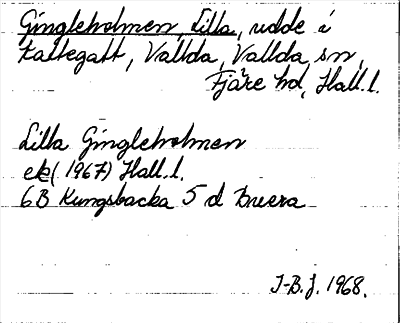 Gingleholmen, Lilla, udde i
Kattegatt, Vallda, Vallda sn,
Fjäre hd, Hall.l.
Lilla Gingleholmen
ek (1967) Hall.l.
6B Kungsbacka 5 d
I-B.J. 1968.